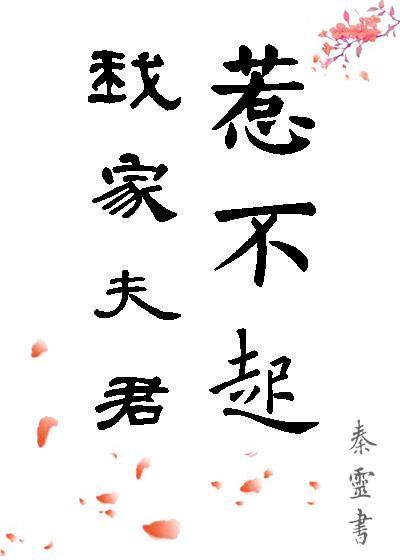 我家夫君
惹不起
秦靈書